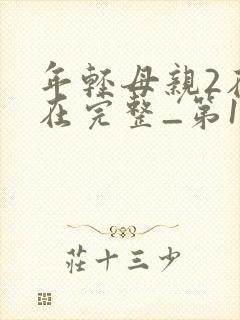 年轻母親2在
在完整_第1
莊十三少